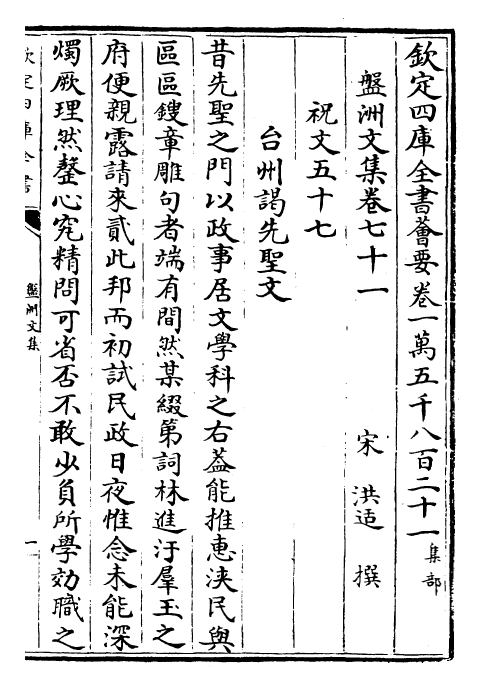 欽定四庫全書薈要卷一萬五千八百二十一集部
盤洲文集卷七十一
宋 洪适 撰
祝文五十七
台州謁先聖文
昔先聖之門以政事居文學科之右葢能推惠浹民與
區區鎪章雕句者端有間然某綴第詞林進汙羣玉之
府便親露請來貳此邦而初試民政日夜惟念未能深
燭厥理然罄心究精問可省否不敢少負所學効職之
欽定四庫全書
盤洲文集
一